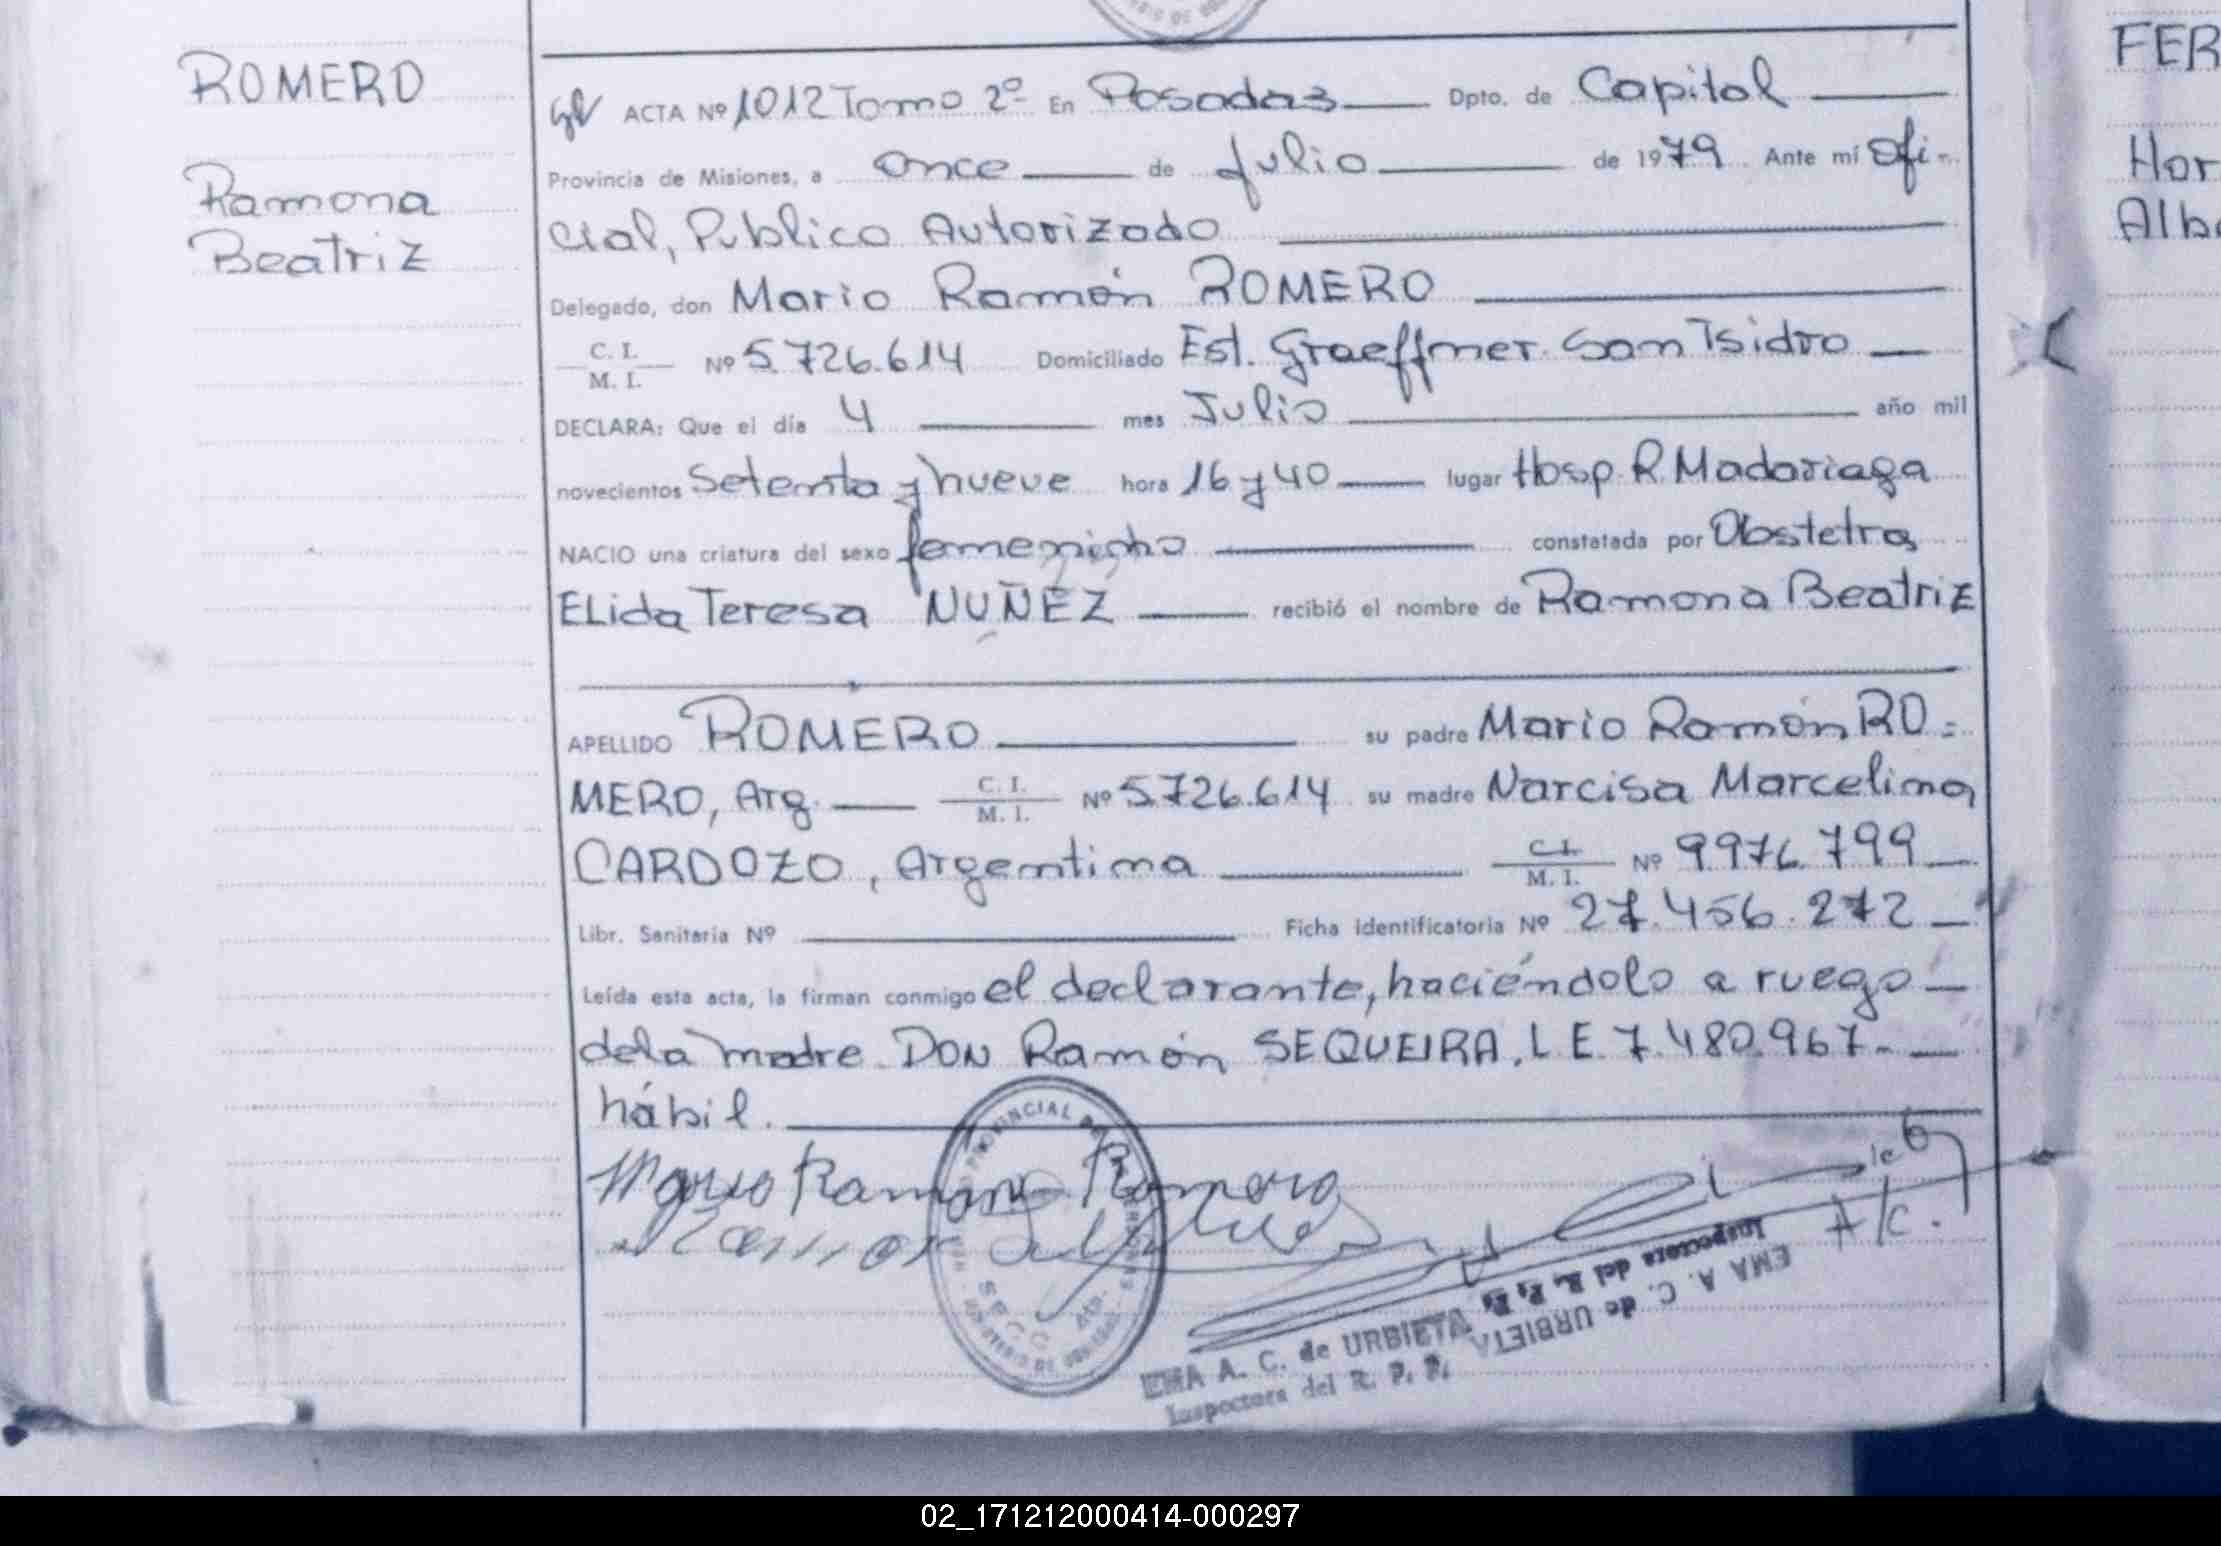 ROMERO
Ramona
Beatriz
ACTA Nº 1012 Tomo 2º En Posadas Dpto. de Capital
Provincia de Misiones, a Once de Julio de 1979 Ante mí Ofi-
cial, Publico Autorizado
Delegado, don Mario Ramón ROMERO
C. I.
M. I. Nº 5.726.614 Domiciliado Est. Graeffner San Isidro
DECLARA: Que el día 4 mes Julio año mil
novecientos setenta y nueve hora 16 y 40 lugar Hosp. R. Madariaga
NACIO una criatura del sexo femenino constatada por Obstetra
ELida Teresa NUÑEZ recibió el nombre de Ramona Beatriz
APELLIDO ROMERO su padre Mario Ramón RO=
MERO, Arg. C. I. M. I. Nº 5.726.614 su madre Narcisa Marcelina
CARDOZO, Argentina C. I. M. I. Nº 9.976.799
Libr. Sanitaria Nº Ficha identificatoria Nº 27.456.272
Leída esta acta, la firman conmigo el declarante, haciéndolo a ruego
de la madre DON Ramón SEQUEIRA, L E. 7.480.967-
hábil.
Mario Ramon Romero
A/c.
EMA A. C. de URBIETA
Inspectora del R. P. P.
EMA A. C. de URBIETA
Inspectora del R. P. P.
FER
Hor
Alb
02_171212000414-000297